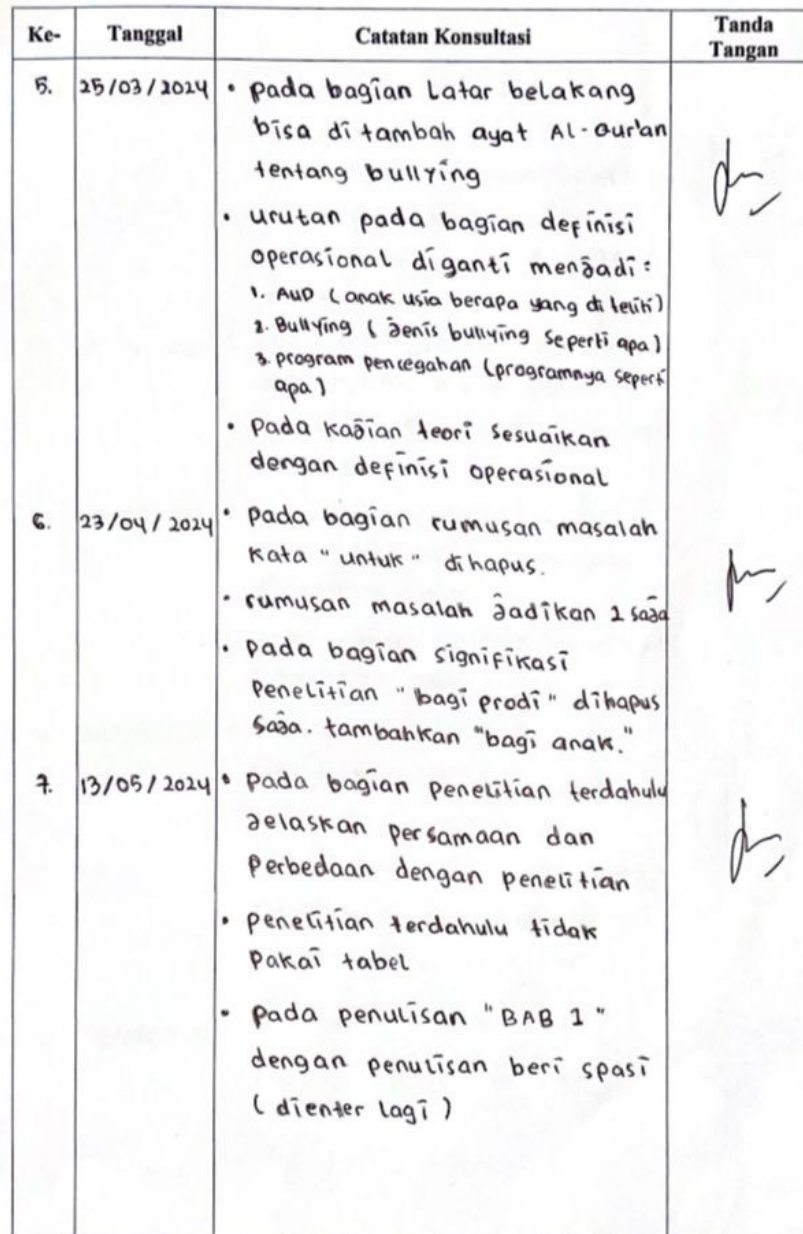 Ke- Tanggal Catatan Konsultasi Tanda Tangan
5. 25/03/2024 • pada bagian Latar belakang
bisa di tambah ayat Al-Qur'an
tentang bullying
• urutan pada bagian definisi
operasional diganti menjadi :
1. AUD (anak usia berapa yang di teliti)
2. Bullying (jenis bullying seperti apa)
3. program pencegahan (programnya seperti
apa)
• pada kajian teori sesuaikan
dengan definisi operasional
6. 23/04/2024 • pada bagian rumusan masalah
kata "untuk" dihapus.
• rumusan masalah jadikan 2 saja
• pada bagian signifikasi
penelitian "bagi prodi" dihapus
saja. tambahkan "bagi anak."
7. 13/05/2024 • pada bagian penelitian terdahulu
jelaskan persamaan dan
perbedaan dengan penelitian
• penelitian terdahulu tidak
pakai tabel
• pada penulisan "BAB 1"
dengan penulisan beri spasi
(dienter lagi)